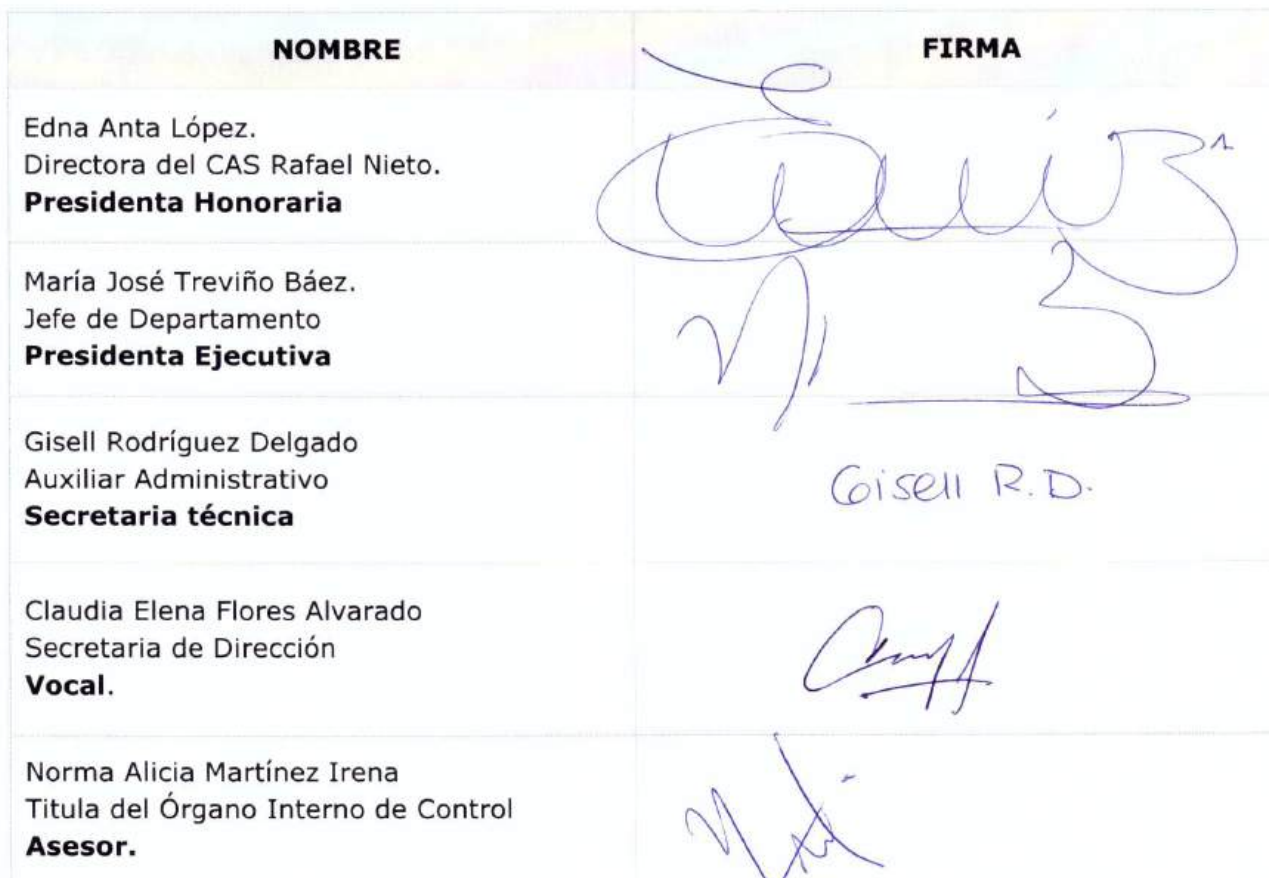 NOMBRE FIRMA
Edna Anta López.
Directora del CAS Rafael Nieto.
Presidenta Honoraria
María José Treviño Báez.
Jefe de Departamento
Presidenta Ejecutiva
Gisell Rodríguez Delgado
Auxiliar Administrativo
Secretaria técnica
Gisell R.D.
Claudia Elena Flores Alvarado
Secretaria de Dirección
Vocal.
Norma Alicia Martínez Irena
Titula del Órgano Interno de Control
Asesor.